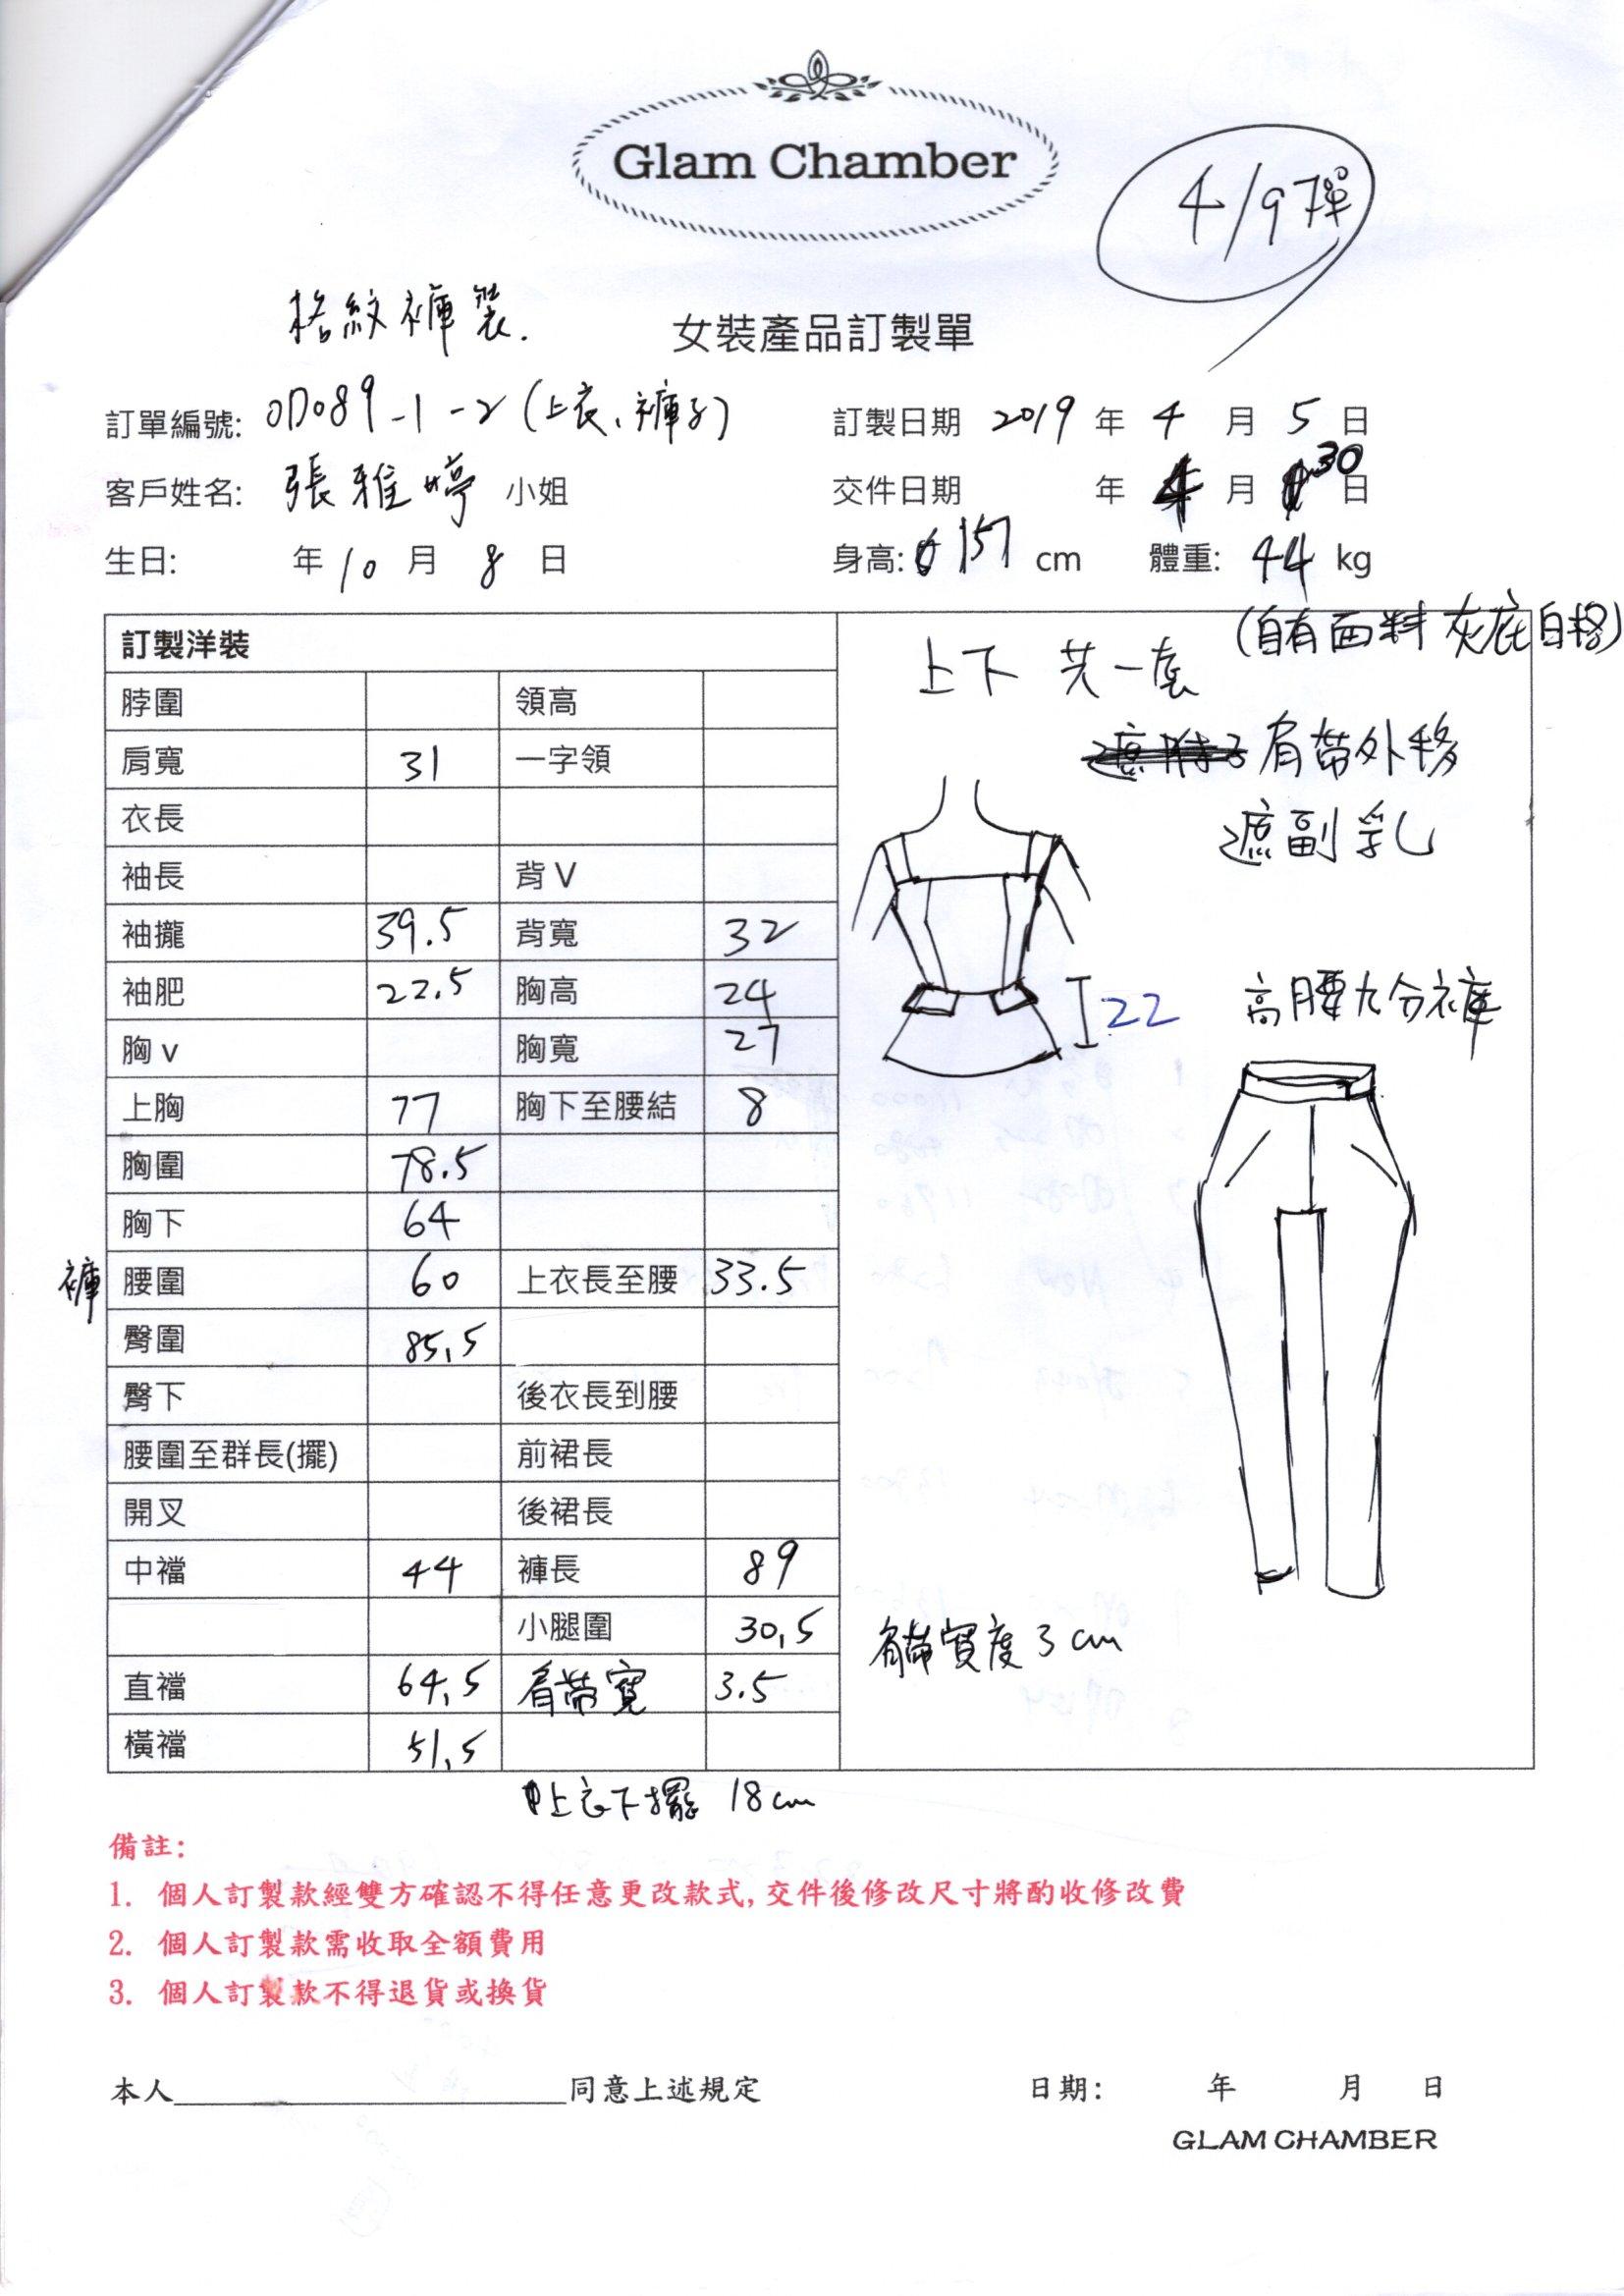 Glam Chamber
4/9
格紋褲裝.
女裝產品訂製單
訂單編號: OD089-1-2(上衣、褲子)
訂製日期 2019 年 4 月 5 日
客戶姓名: 張雅婷 小姐
交件日期 年 4 月 30 日
生日: 年 10 月 8 日
身高: 157 cm 體重: 44 kg
(自有面料 灰底白格)
訂製洋裝
上下 共一套
脖圍 領高
肩帶外移
肩寬 31 一字領
遮副乳
衣長
袖長 背V
袖攏 39.5 背寬 32
袖肥 22.5 胸高 24
22 高腰九分褲
胸v 胸寬 27
上胸 77 胸下至腰結 8
胸圍 78.5
胸下 64
褲 腰圍 60 上衣長至腰 33.5
臀圍 85.5
臀下 後衣長到腰
腰圍至群長(擺) 前裙長
開叉 後裙長
中襠 44 褲長 89
小腿圍 30.5
肩帶寬度 3cm
直襠 64.5 肩帶寬 3.5
橫襠 51.5
上衣下擺 18cm
備註:
1. 個人訂製款經雙方確認不得任意更改款式, 交件後修改尺寸將酌收修改費
2. 個人訂製款需收取全額費用
3. 個人訂製款不得退貨或換貨
本人 同意上述規定
日期: 年 月 日
GLAM CHAMBER